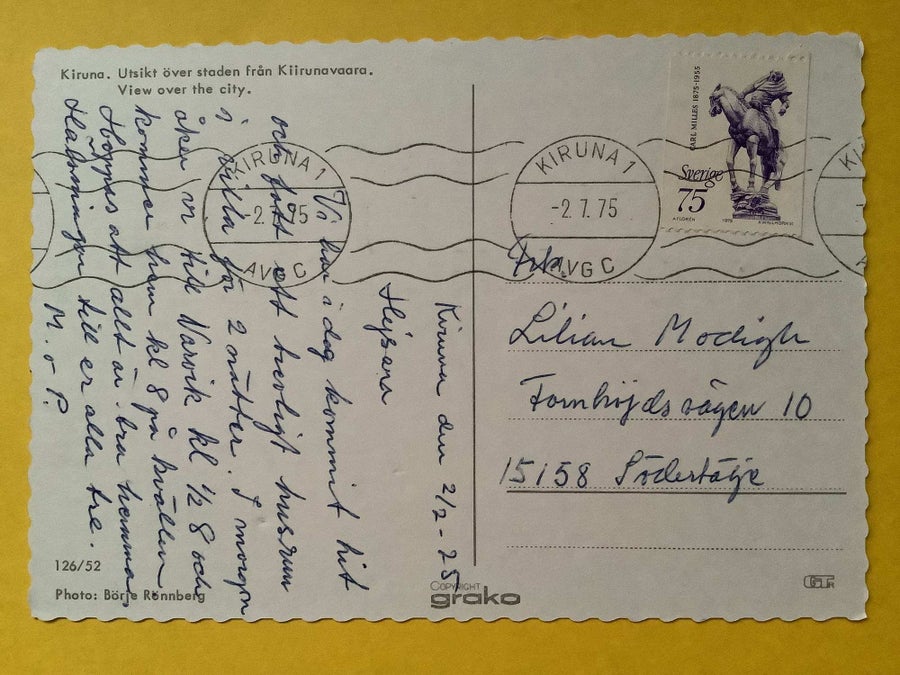 Kiruna. Utsikt över staden från Kiirunavaara.
View over the city.
Kiruna den 2/7 - 75
Hejsan
Vi har i dag kommit hit
och fått ett trevligt husrum
i villa för 2 nätter. I morgon
åker vi till Narvik kl ½ 8 och
kommer hem kl 8 på kvällen.
Hoppas att allt är bra hemma.
Hälsningar till er alla tre.
M. o P.
126/52
Photo: Börje Rönnberg
COPYRIGHT
grako
KIRUNA 1
-2. 7. 75
AVG C
KIRUNA 1
-2. 7. 75
AVG C
KI
CARL MILLES 1875-1955
Sverige
75
1975
Lilian Modigh
Fornhöjdsvägen 10
15158 Södertälje